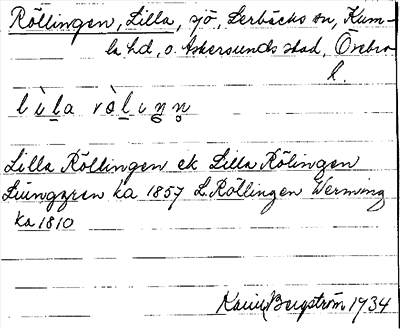 Röllingen, Lilla, sjö, Lerbäcks sn, Kum-
la hd, o. Askersunds stad, Örebro
l.
Lilla Röllingen ek Lilla Rölingen
Ljunggren ka 1857 L. Röllingen Werming
ka 1810
Karin Bergström 1934